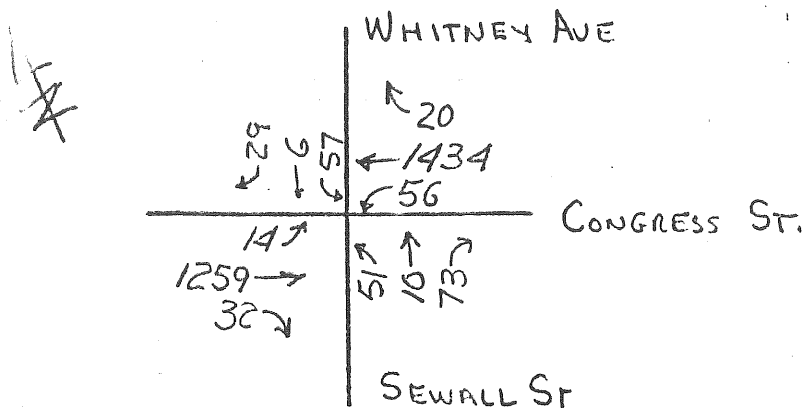 WHITNEY AVE
20
1434
56
29
6
57
CONGRESS ST.
14
1259
32
51
10
73
SEWALL ST